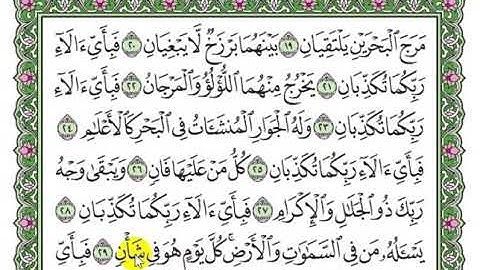 مَرَجَ ٱلْبَحْرَيْنِ يَلْتَقِيَانِ ١٩ بَيْنَهُمَا بَرْزَخٌ لَّا يَبْغِيَانِ ٢٠ فَبِأَيِّ ءَالَآءِ
رَبِّكُمَا تُكَذِّبَانِ ٢١ يَخْرُجُ مِنْهُمَا ٱللُّؤْلُؤُ وَٱلْمَرْجَانُ ٢٢ فَبِأَيِّ ءَالَآءِ
رَبِّكُمَا تُكَذِّبَانِ ٢٣ وَلَهُ ٱلْجَوَارِ ٱلْمُنشَـَٔاتُ فِى ٱلْبَحْرِ كَٱلْأَعْلَـٰمِ ٢٤
فَبِأَيِّ ءَالَآءِ رَبِّكُمَا تُكَذِّبَانِ ٢٥ كُلُّ مَنْ عَلَيْهَا فَانٍ ٢٦ وَيَبْقَىٰ وَجْهُ
رَبِّكَ ذُو ٱلْجَلَـٰلِ وَٱلْإِكْرَامِ ٢٧ فَبِأَيِّ ءَالَآءِ رَبِّكُمَا تُكَذِّبَانِ ٢٨
يَسْـَٔلُهُۥ مَن فِى ٱلسَّمَـٰوَٰتِ وَٱلْأَرْضِ ۚ كُلَّ يَوْمٍ هُوَ فِى شَأْنٍ ٢٩ فَبِأَيِّ